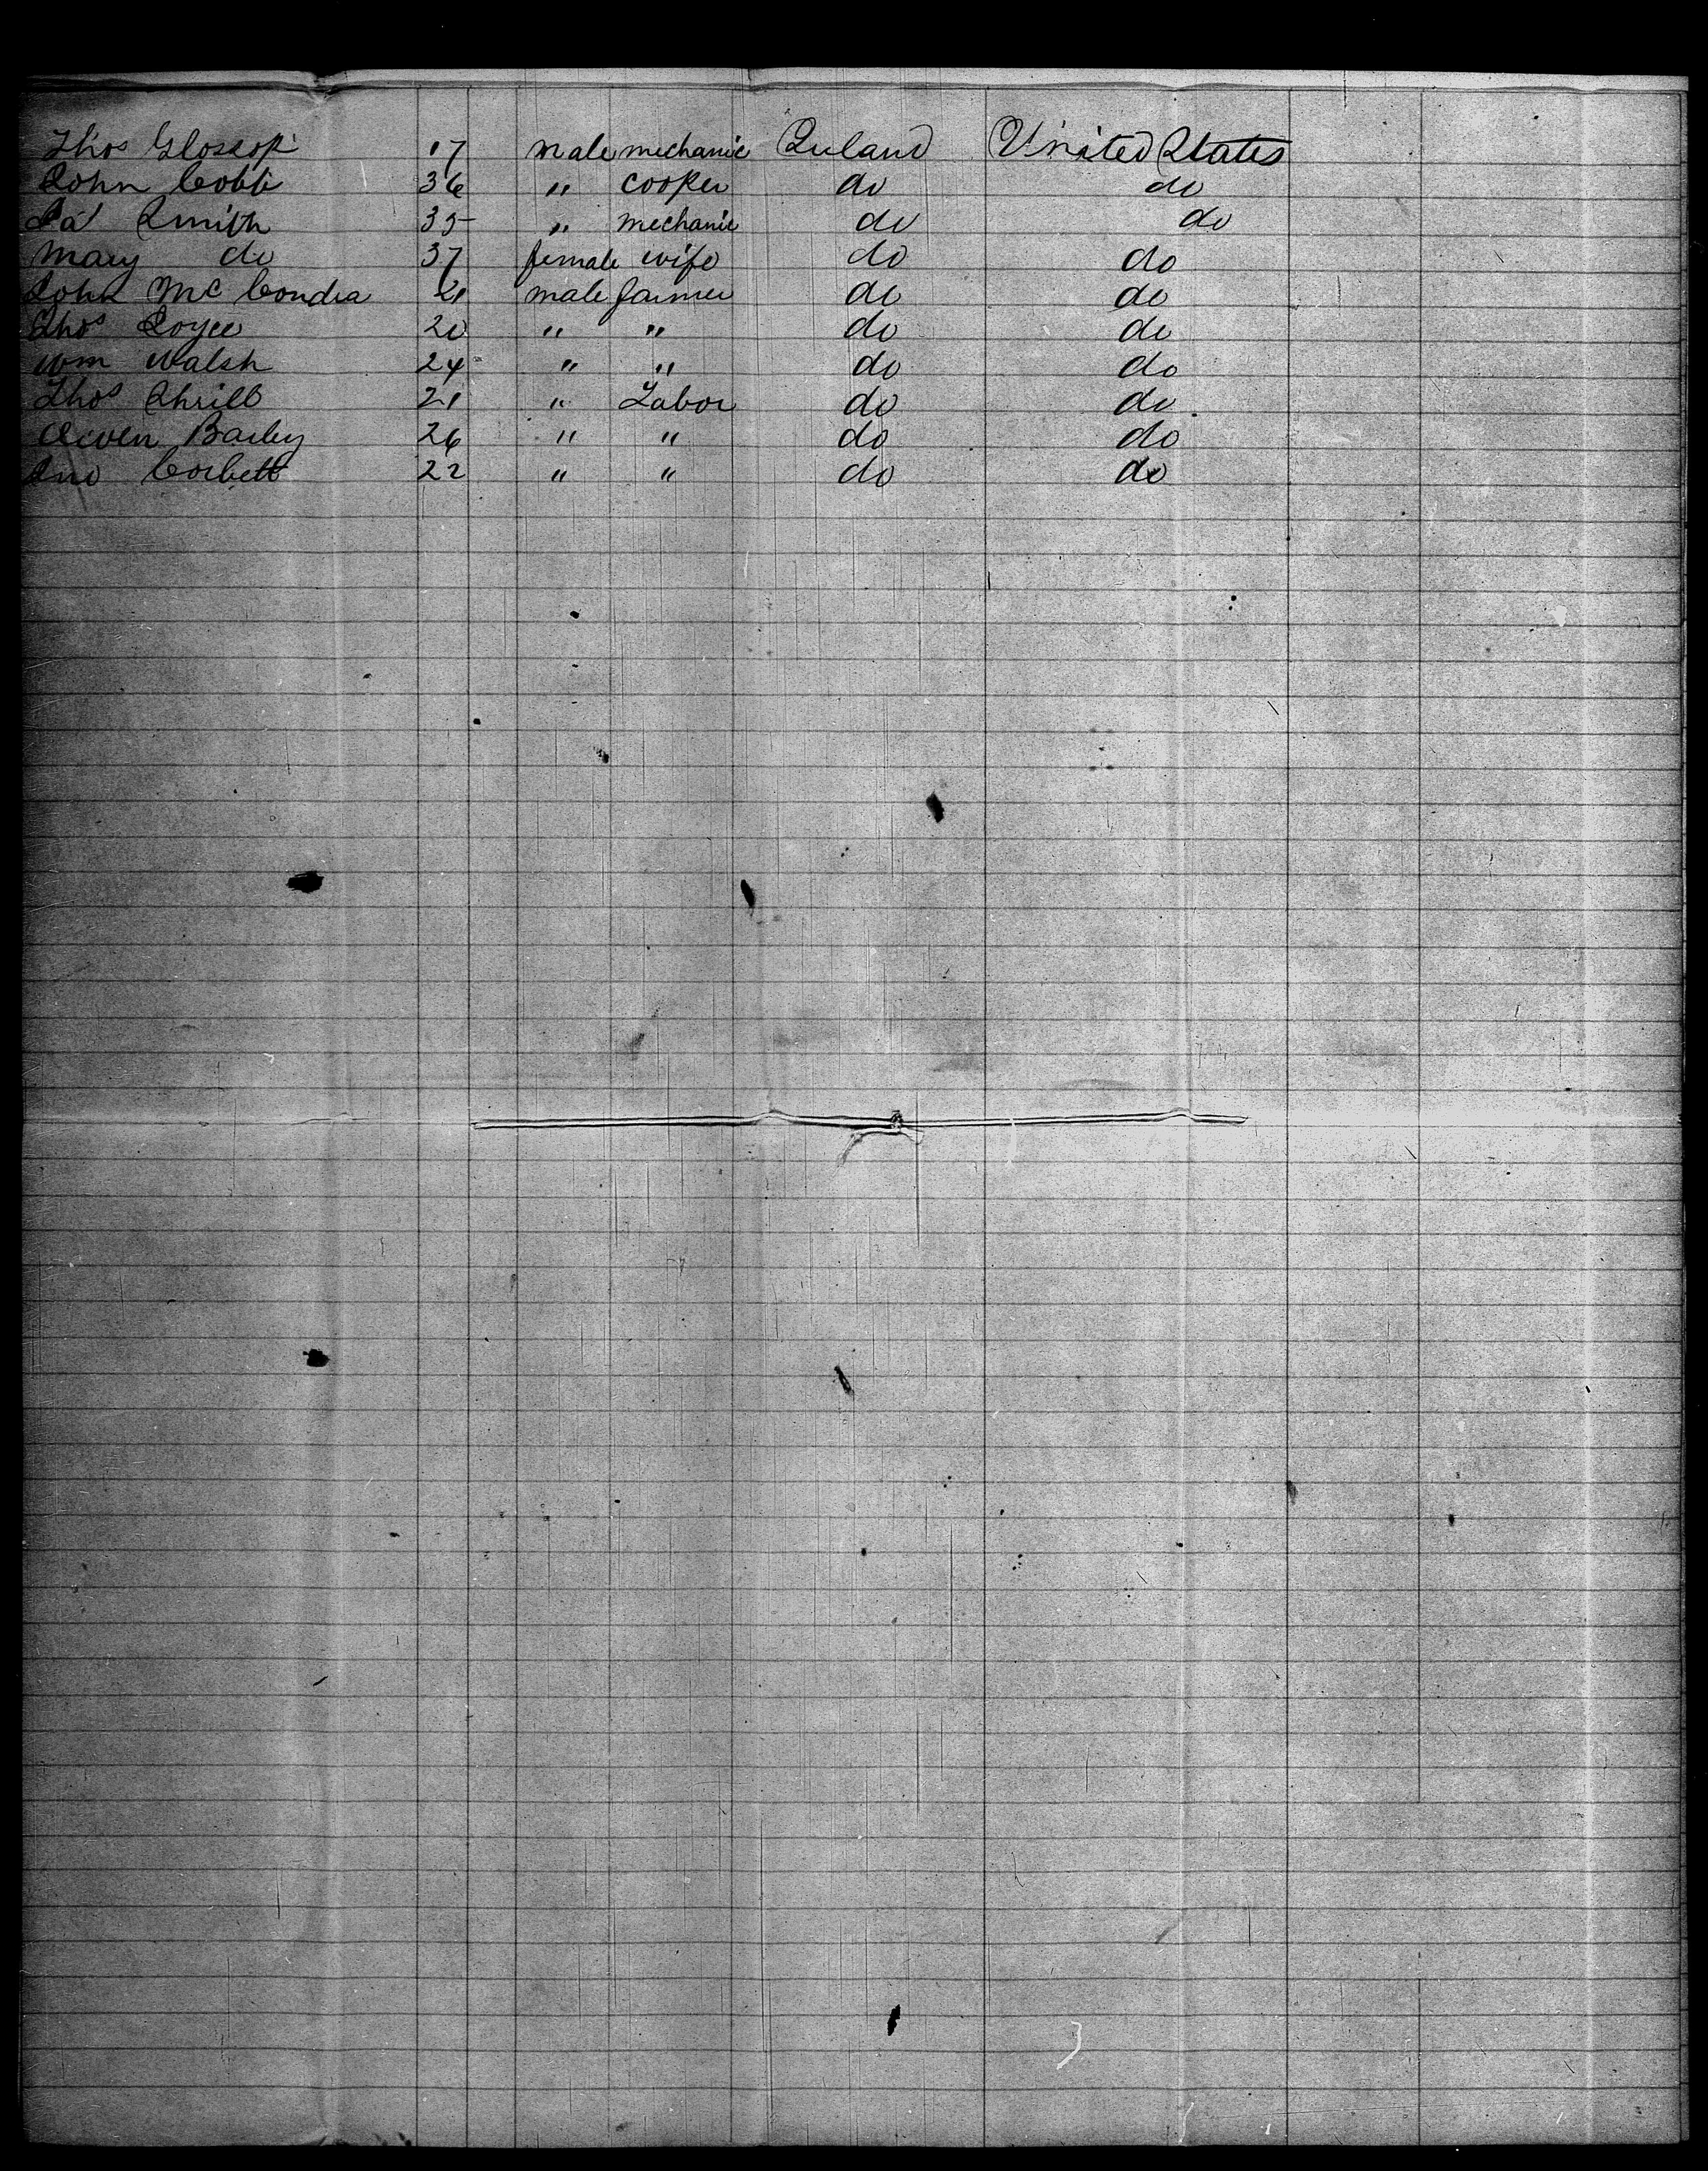 Thos Glossop 17 male mechanic Ireland United States
John Cobb 36 " cooper do do
Pat Smith 35 " mechanic do do
Mary do 37 female wife do do
John McCondra 21 male farmer do do
Thos Joyce 20 " " do do
Wm Walsh 24 " " do do
Thos 21 " Labor do do
Owen Barley 26 " " do do
Jno Corbett 22 " " do do